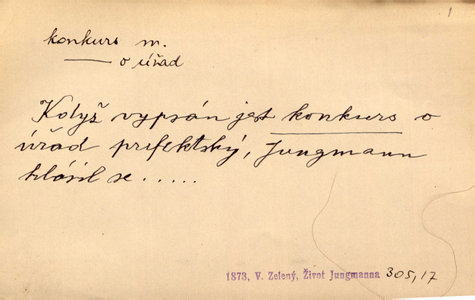 1
konkurs m.
— o úřad
Když vypsán jest konkurs o
úřad prefektský, Jungmann
hlásil se.....
1873, V. Zelený, Život Jungmanna 305,17